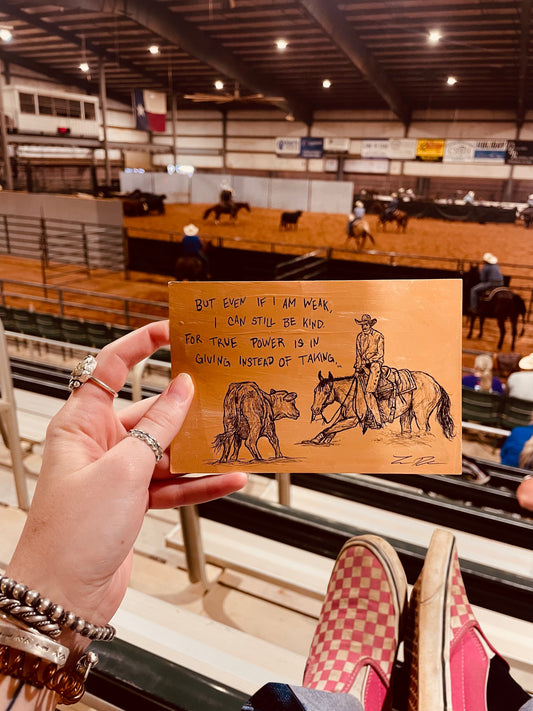 BUT EVEN IF I AM WEAK,
I CAN STILL BE KIND.
FOR TRUE POWER IS IN
GIVING INSTEAD OF TAKING...